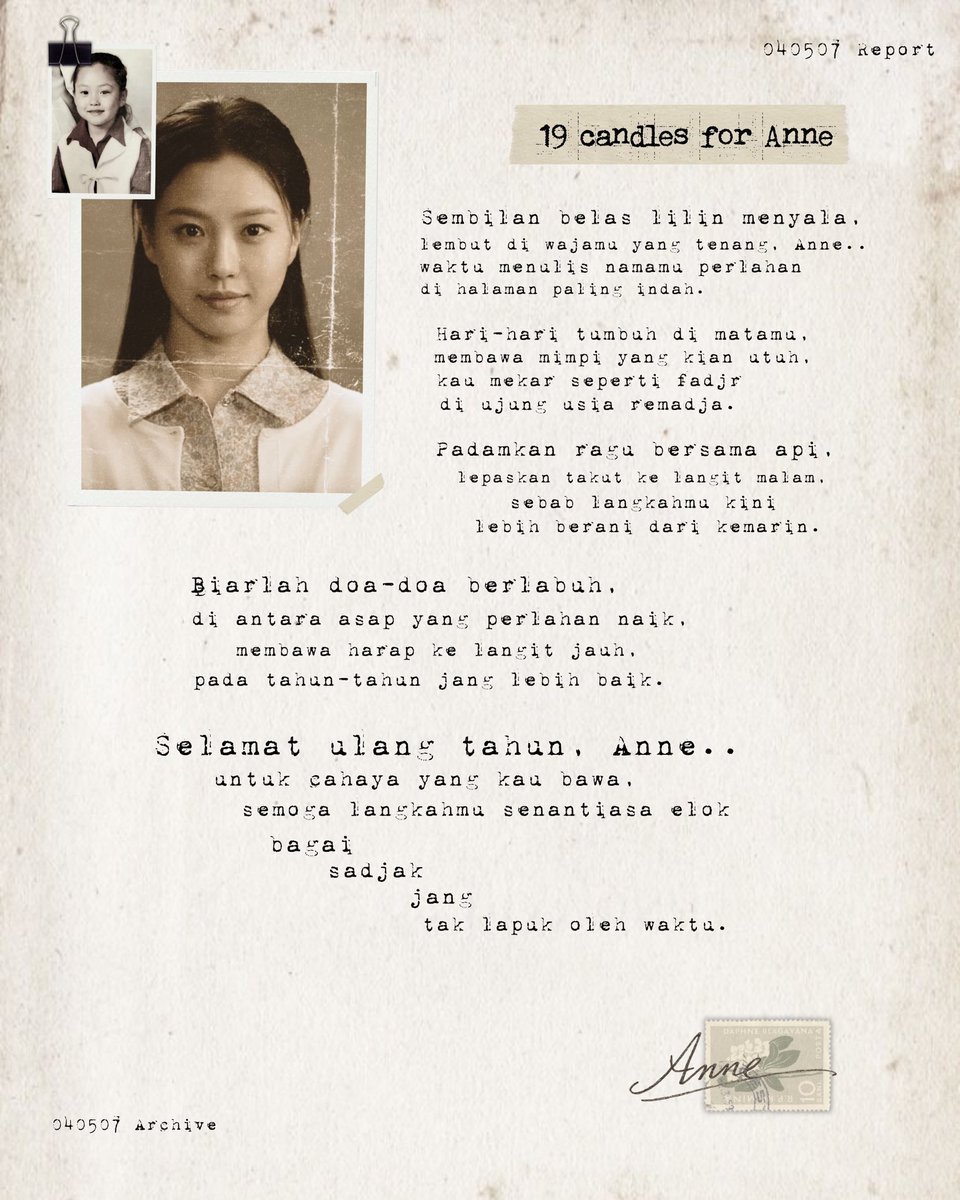 040507 Report
19 candles for Anne
Sembilan belas lilin menyala,
lembut di wajamu yang tenang, Anne..
waktu menulis namamu perlahan
di halaman paling indah.
Hari-hari tumbuh di matamu,
membawa mimpi yang kian utuh,
kau mekar seperti fadjr
di ujung usia remadja.
Padamkan ragu bersama api,
lepaskan takut ke langit malam,
sebab langkahmu kini
lebih berani dari kemarin.
Biarlah doa-doa berlabuh,
di antara asap yang perlahan naik,
membawa harap ke langit jauh,
pada tahun-tahun jang lebih baik.
Selamat ulang tahun, Anne..
untuk cahaya yang kau bawa,
semoga langkahmu senantiasa elok
bagai
sadjak
jang
tak lapuk oleh waktu.
DAPHNE BLAGAYANA
Anne
10
040507 Archive